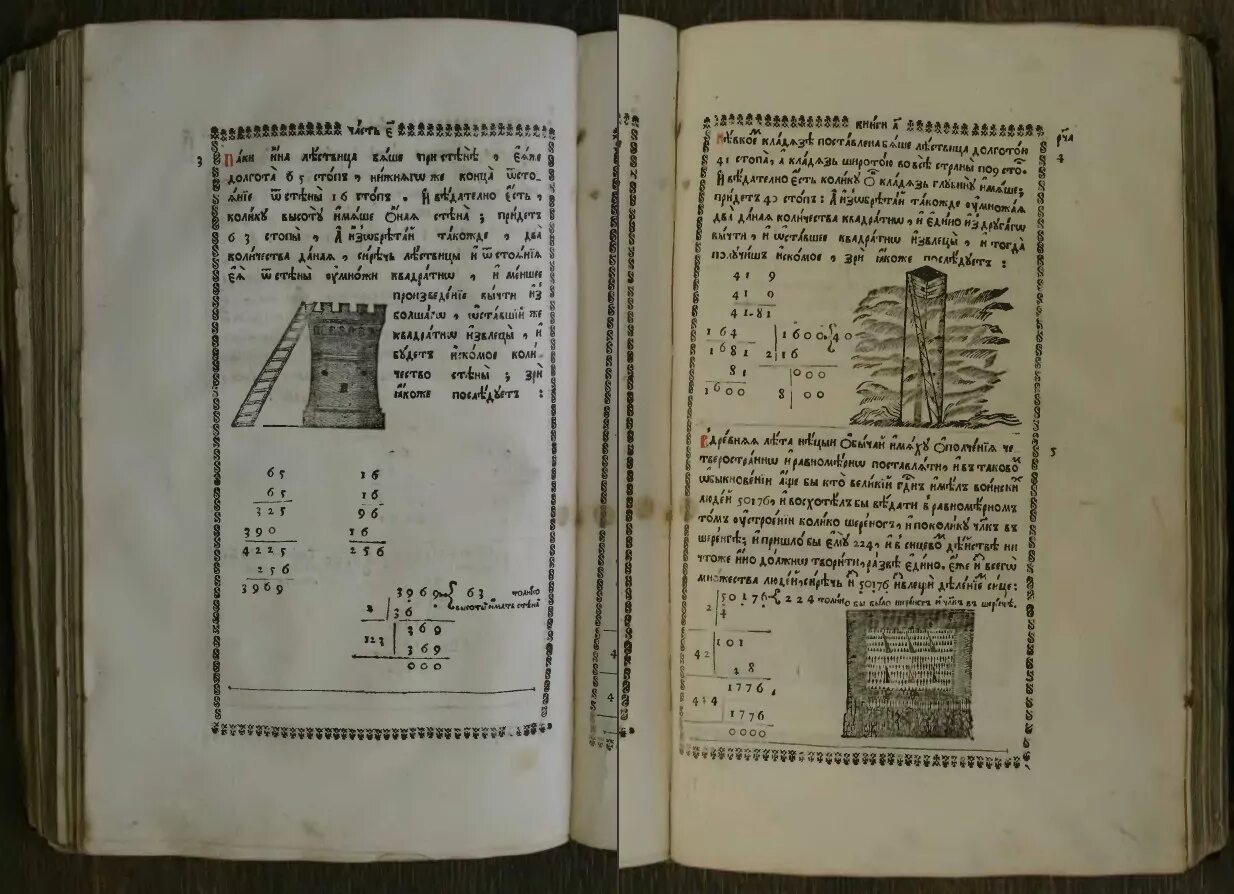 часть є҃
3
Паки и҆на лѣствица бѧше при стенѣ , є҆ѧже
долгота 65 стопъ , нижнѧгѡ же конца ѿсто-
ѧнїе ѿ стены 16 стопъ . И҆ вѣдателно є҆сть ,
колику высоту и҆мѧше ѻ҆наѧ стена ; придетъ
63 стопы , А҆ и҆зѡбрѣтай такожде , два
количества данаѧ , сирѣчь лѣствицы и҆ ѿстоѧнїѧ
є҆ѧ̀ ѿ стены ᲂу҆множи квадратнѡ , и҆ меншее
произведенїе вычти и҆з
болшагѡ , ѡ҆ставшїй же
квадратнѡ и҆звлецы , и҆
будетъ и҆скомое коли-
чество стены ; зри
ꙗ҆коже послѣдуетъ :
65
65
325
390
4225
256
3969
16
16
96
16
256
3969 { 63 толикю
высоты имать стена
2 | 36
123 | 369
369
000
книги а҃
рча
4
Нѣкоемъ кладѧзѣ поставлена бѧше лѣствица долготою
41 стопа , а кладѧзь широтою во всѣ страны по 9 стопъ
И҆ вѣдателно є҆сть колику ѻ҆ кладѧзь глубину и҆мѧше ;
придетъ 40 стопъ : А҆ и҆зѡбрѣтай такожде ᲂу҆множаѧ
два данаѧ количества квадратнѡ , и҆ єдино и҆з другагѡ
вычти , и҆ ѡ҆ставшее квадратнѡ и҆звлецы , и҆ тогда
получишъ и҆скомое , зри ꙗ҆коже послѣдуетъ :
41 9
41 9
41 . 81
164
1681
81
1600
1600 { 40
2 | 16
000
8 | 00
5
Въ древнѧѧ лѣта нѣцыи ѻ҆бычай и҆мѧху ѻ҆полченїѧ че-
твеространнѡ и҆ равномѣрнѡ поставлѧти , и҆ въ таковомъ
ѡ҆быкновенїи аще бы кто великїй гдⷭ҇нъ и҆мѣлъ воинскихъ
людей 50176 , и҆ восхотѣлъ бы вѣдати в равномѣрном
томъ ᲂу҆строенїи колико шереногъ , и҆ поколику чл҃къ въ
шеренгѣ ; и҆ пришло бы є҆му 224 , и҆ в сицевомъ дѣйствѣ ни
чтоже и҆но должнѡ творити , развѣ єдино . є҆же и҆ всегѡ
множества людей , сирѣчь и҆з 50176 и҆звлещи дѣленїе сице :
50176 { 224 толико бы было шеренгъ и҆ чл҃къ въ шеренгѣ .
2 | 4
42 | 101
28
1776
444
1776
0000